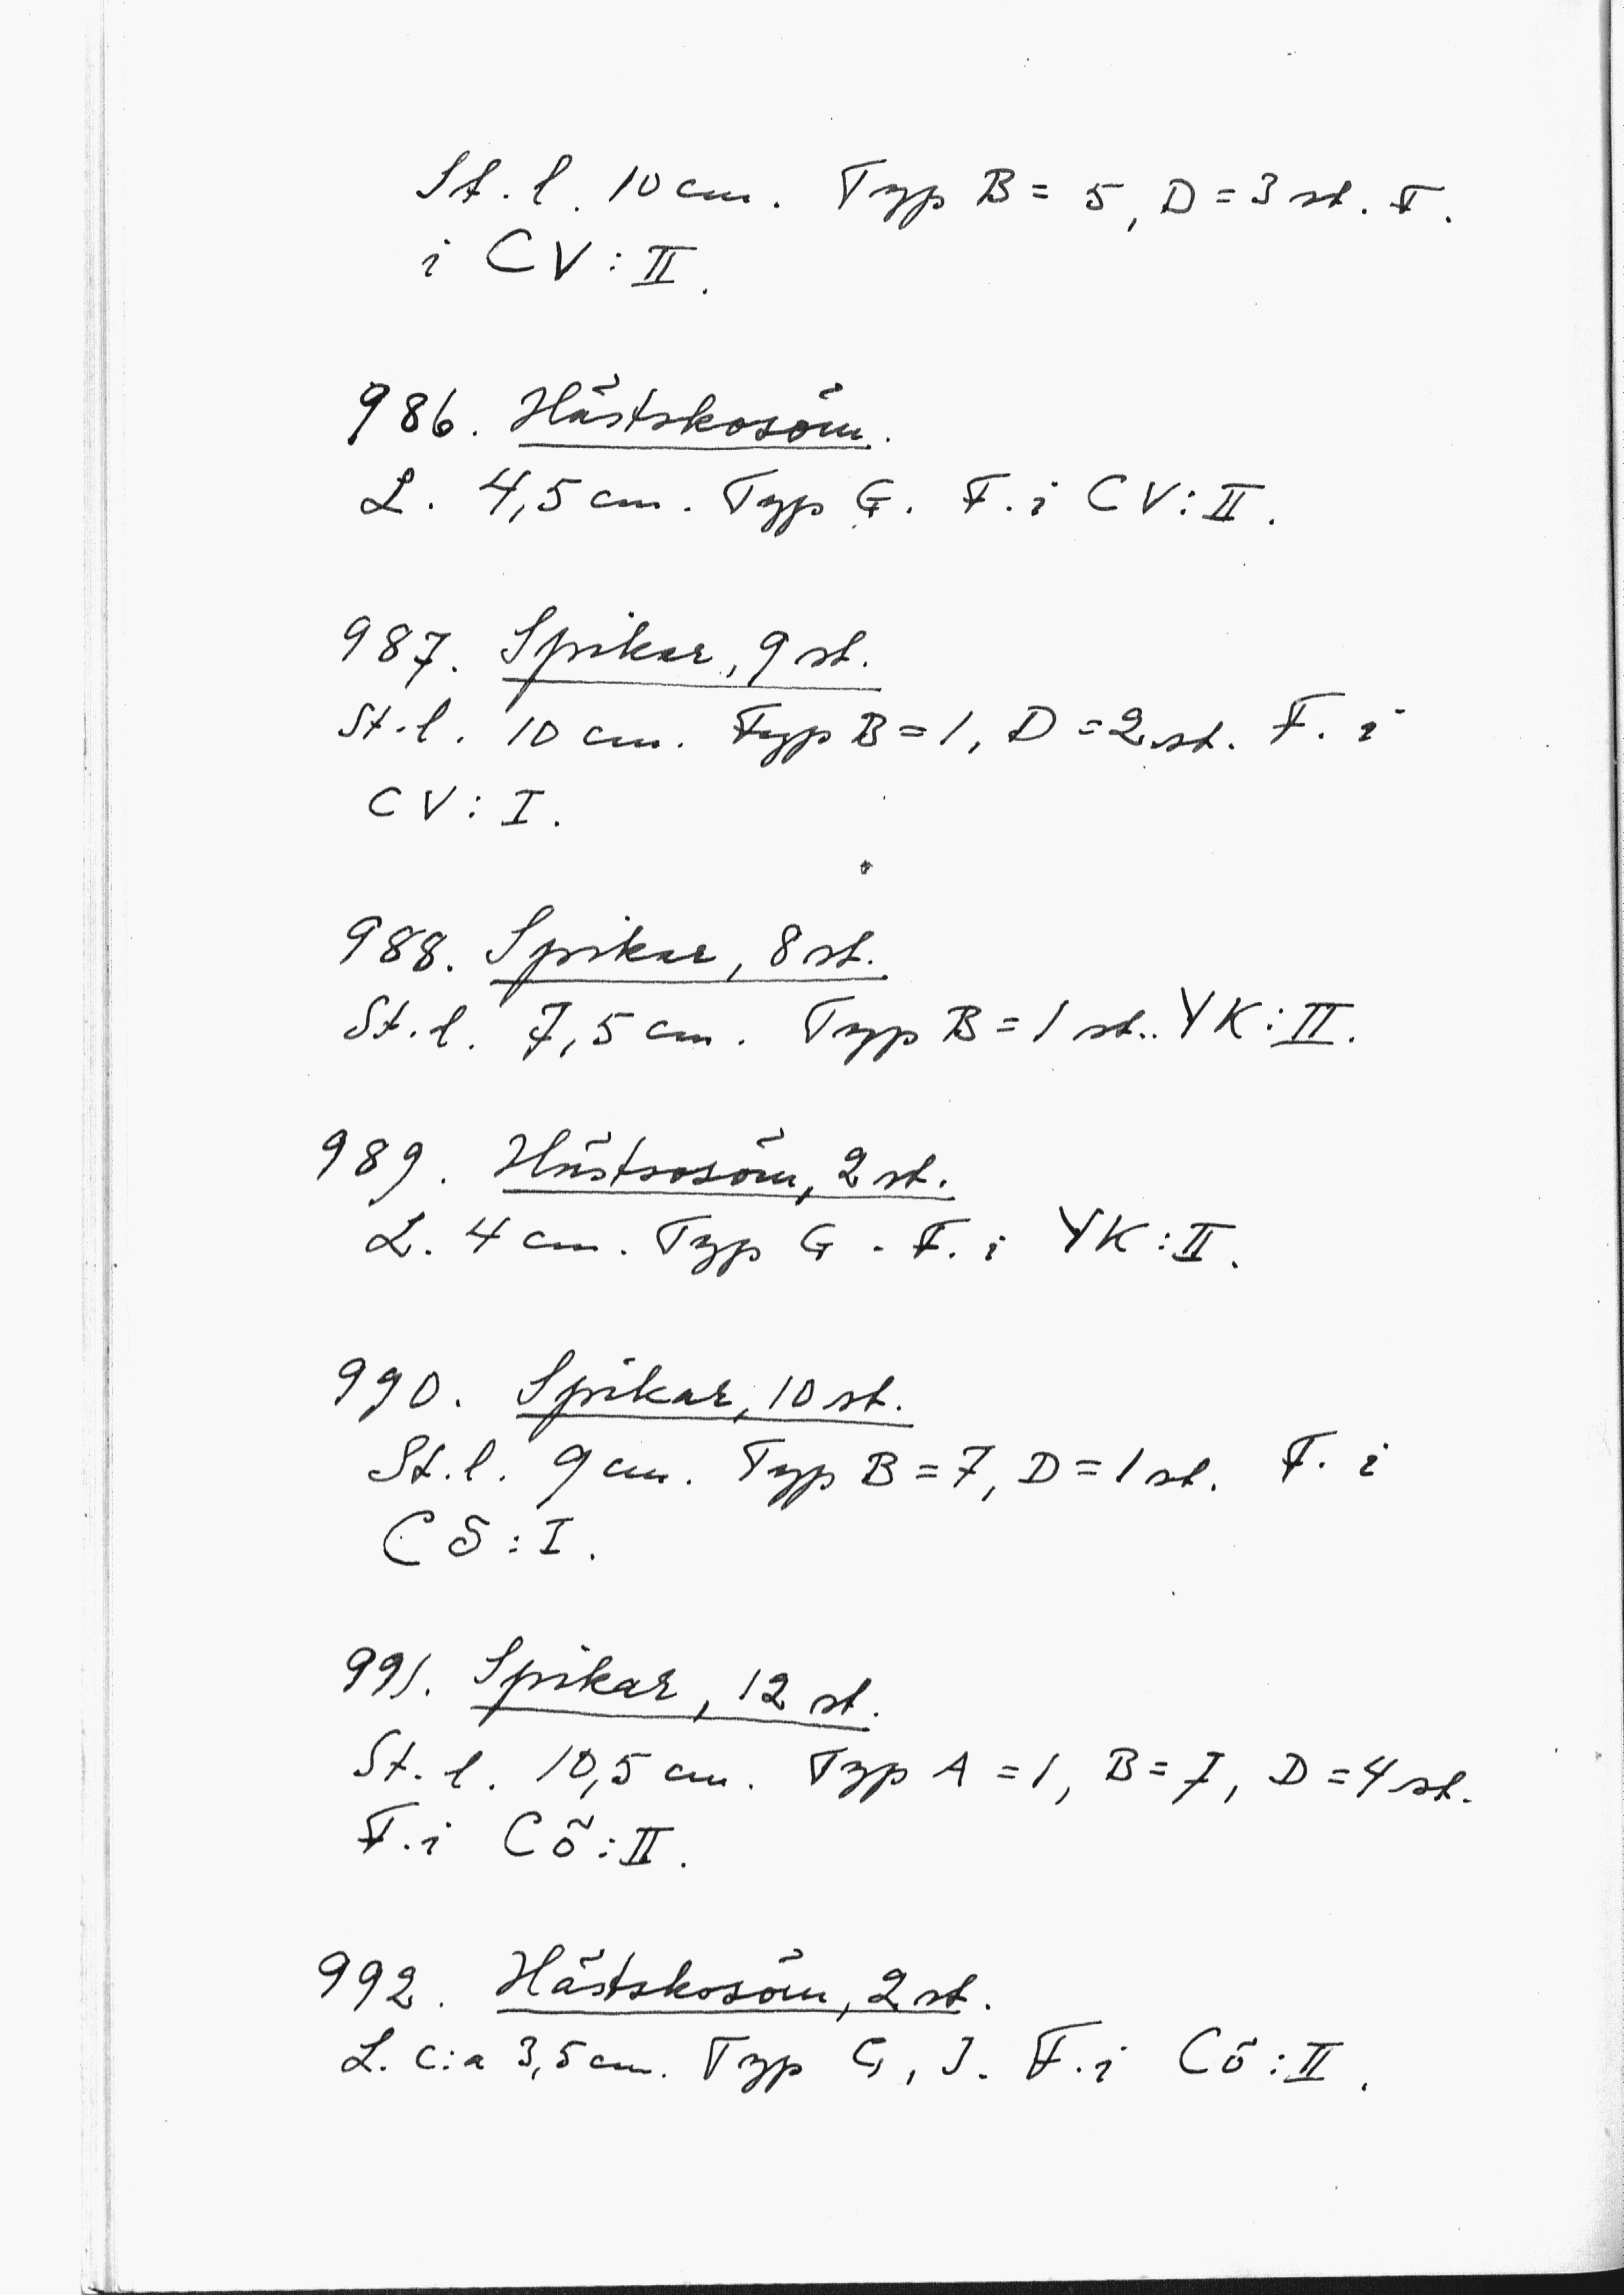 St. l. 10 cm. Typ B = 5, D = 3 st. F.
i CV : II.
986. Hästskosöm.
L. 4,5 cm. Typ G. F. i CV : II.
987. Spikar, 9 st.
St. l. 10 cm. Typ B = 1, D = 2 st. F. i
CV : I.
988. Spikar, 8 st.
St. l. 7,5 cm. Typ B = 1 st.. YK : II.
989. Hästsosöm, 2 st.
L. 4 cm. Typ G. F. i YK : II.
990. Spikar, 10 st.
St. l. 9 cm. Typ B = 7, D = 1 st. F. i
CÖ : I.
991. Spikar, 12 st.
St. l. 10,5 cm. Typ A = 1, B = 7, D = 4 st.
F. i CÖ : II.
992. Hästskosöm, 2 st.
L. c:a 3,5 cm. Typ G, J. F. i CÖ : II.